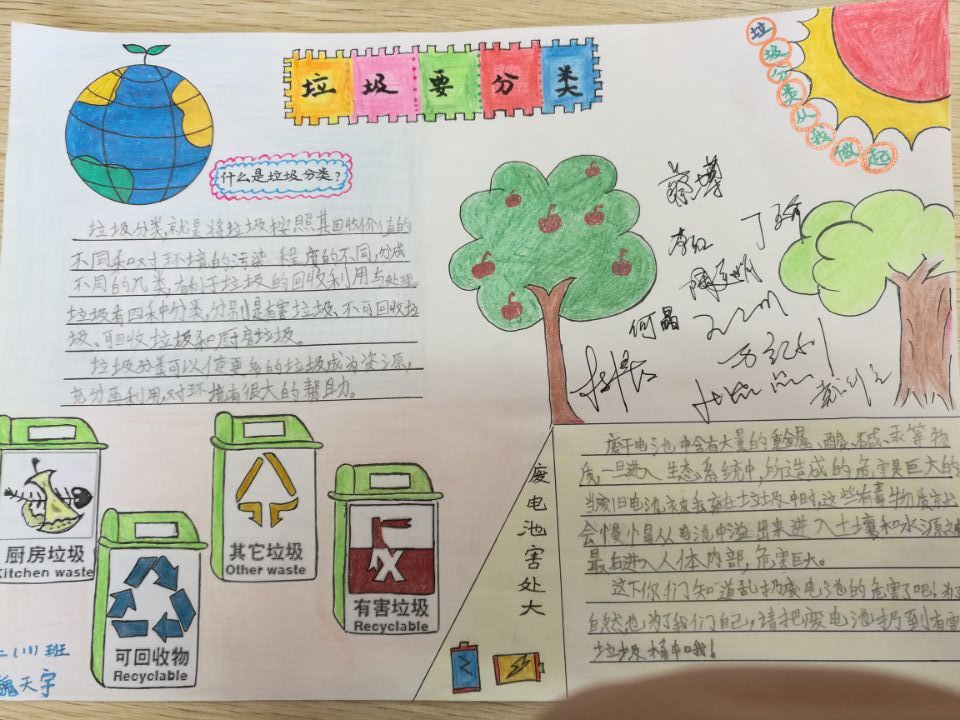 垃圾要分类
垃圾分类从我做起
什么是垃圾分类?
垃圾分类,就是将垃圾按照其回收价值的
不同和对环境的污染程度的不同,分成
不同的几类,有利于垃圾的回收利用与处理。
垃圾有四种分类,分别是有害垃圾、不可回收垃
圾、可回收垃圾和厨房垃圾。
垃圾分类可以使更多的垃圾成为资源,
充分再利用,对环境有很大的帮助。
何晶
厨房垃圾
Kitchen waste
可回收物
Recyclable
其它垃圾
Other waste
有害垃圾
Recyclable
二(11)班
魏天宇
废电池害处大
废干电池中含有大量的重金属、酸、碱、汞等物
质,一旦进入生态系统中,所造成的危害是巨大的
当废旧电池被我弃在垃圾中时,这些有毒物质就
会慢慢从电池中溢出来进入土壤和水源之中
最后进入人体内部,危害巨大。
这下你们知道乱扔废电池的危害了吧!为了
自然,也为了我们自己,请把废电池扔到有害
垃圾桶中哦!